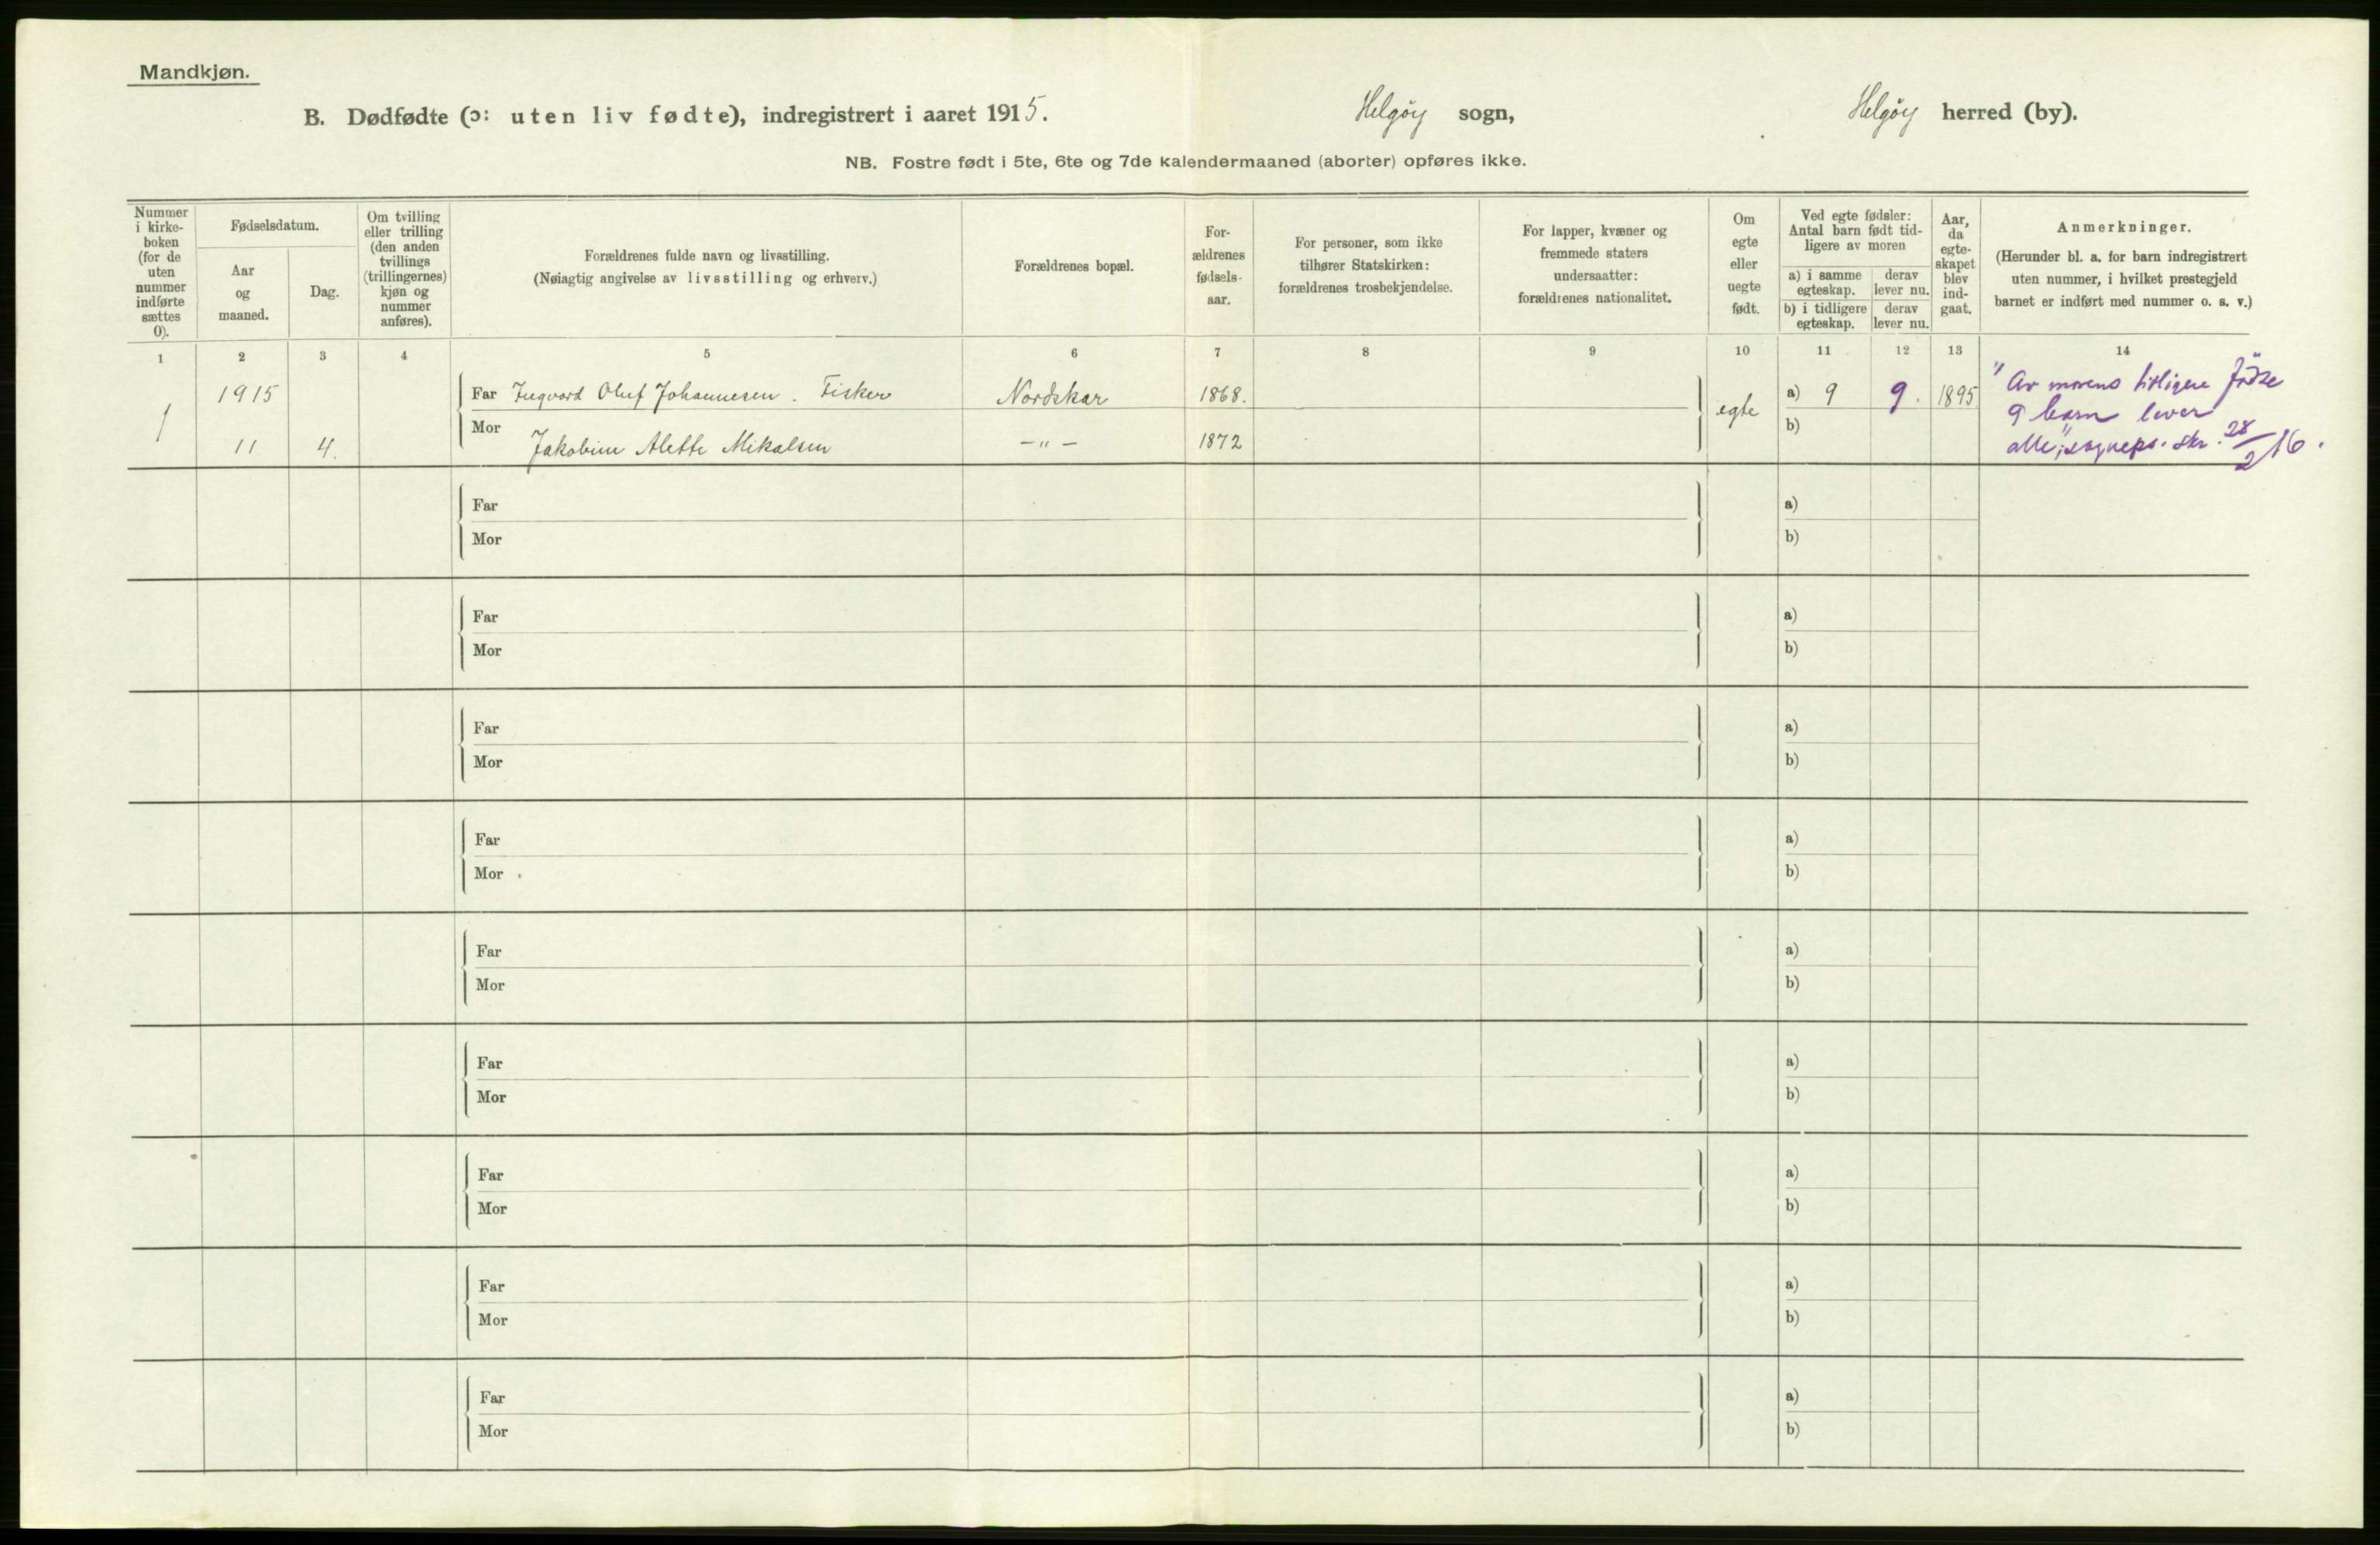 Mandkjøn.
B. Dødfødte (ɔ: uten liv fødte), indregistrert i aaret 1915. Helgøy sogn, Helgøy herred (by).
NB. Fostre født i 5te, 6te og 7de kalendermaaned (aborter) opføres ikke.
Nummer i kirke-boken (for de uten nummer indførte sættes 0).
Fødselsdatum.
Aar og maaned.
Dag.
Om tvilling eller trilling (den anden tvillings (trillingernes) kjøn og nummer anføres).
Forældrenes fulde navn og livsstilling.
(Nøiagtig angivelse av livsstilling og erhverv.)
Forældrenes bopæl.
For-ældrenes fødsels-aar.
For personer, som ikke tilhører Statskirken: forældrenes trosbekjendelse.
For lapper, kvæner og fremmede staters undersaatter: forældrenes nationalitet.
Om egte eller uegte født.
Ved egte fødsler: Antal barn født tid-ligere av moren
a) i samme egteskap.
derav lever nu.
b) i tidligere egteskap.
derav lever nu.
Aar, da egte-skapet blev ind-gaat.
Anmerkninger.
(Herunder bl. a. for barn indregistrert uten nummer, i hvilket prestegjeld barnet er indført med nummer o. s. v.)
1 2 3 4 5 6 7 8 9 10 11 12 13 14
1915 Far Ingvard Oluf Johannesen. Fisker Nordskar 1868. a) 9 9. 1895 "Av morens tidligere fødte
1 egte 9 barn lever
11 4. Mor Jakobine Alette Mikalsen –"– 1872 b) alle"; sogneps. skr. 28/2 16.
Far a)
Mor b)
Far a)
Mor b)
Far a)
Mor b)
Far a)
Mor b)
Far a)
Mor b)
Far a)
Mor b)
Far a)
Mor b)
Far a)
Mor b)
Far a)
Mor b)